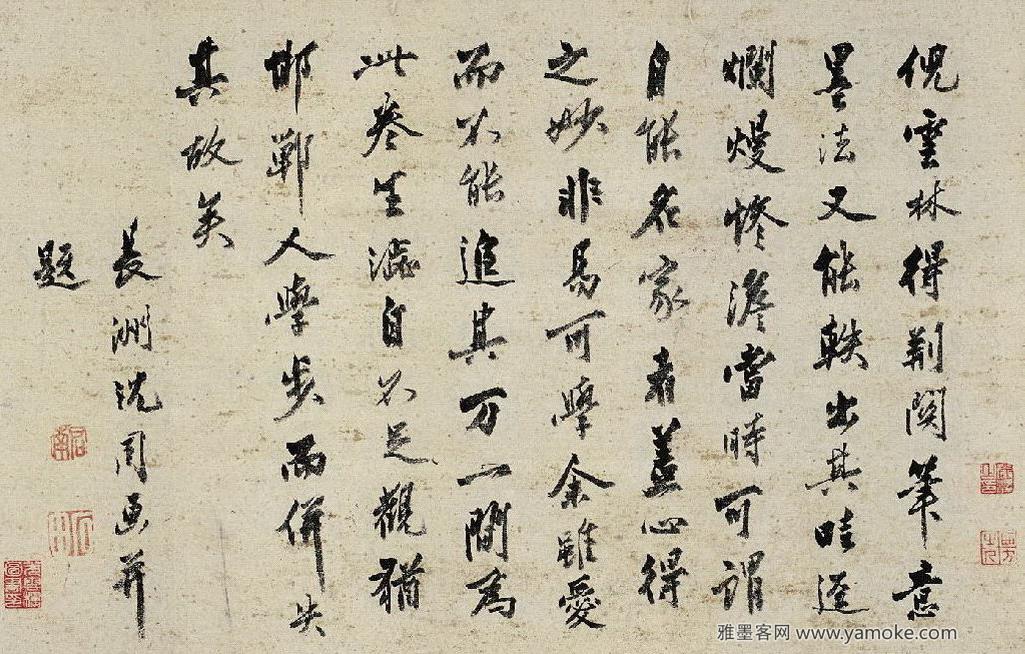 倪雲林得荊關筆意
墨法又能軼出其畦逕
爛熳慘澹當時可謂
自能名家者蓋心得
之妙非易可學余雖愛
而不能追其万一間為
此卷生澁自不足觀猶
邯鄲人學步而併失
其故矣
長洲沈周画并
題
雅墨客网 www.yamoke.com